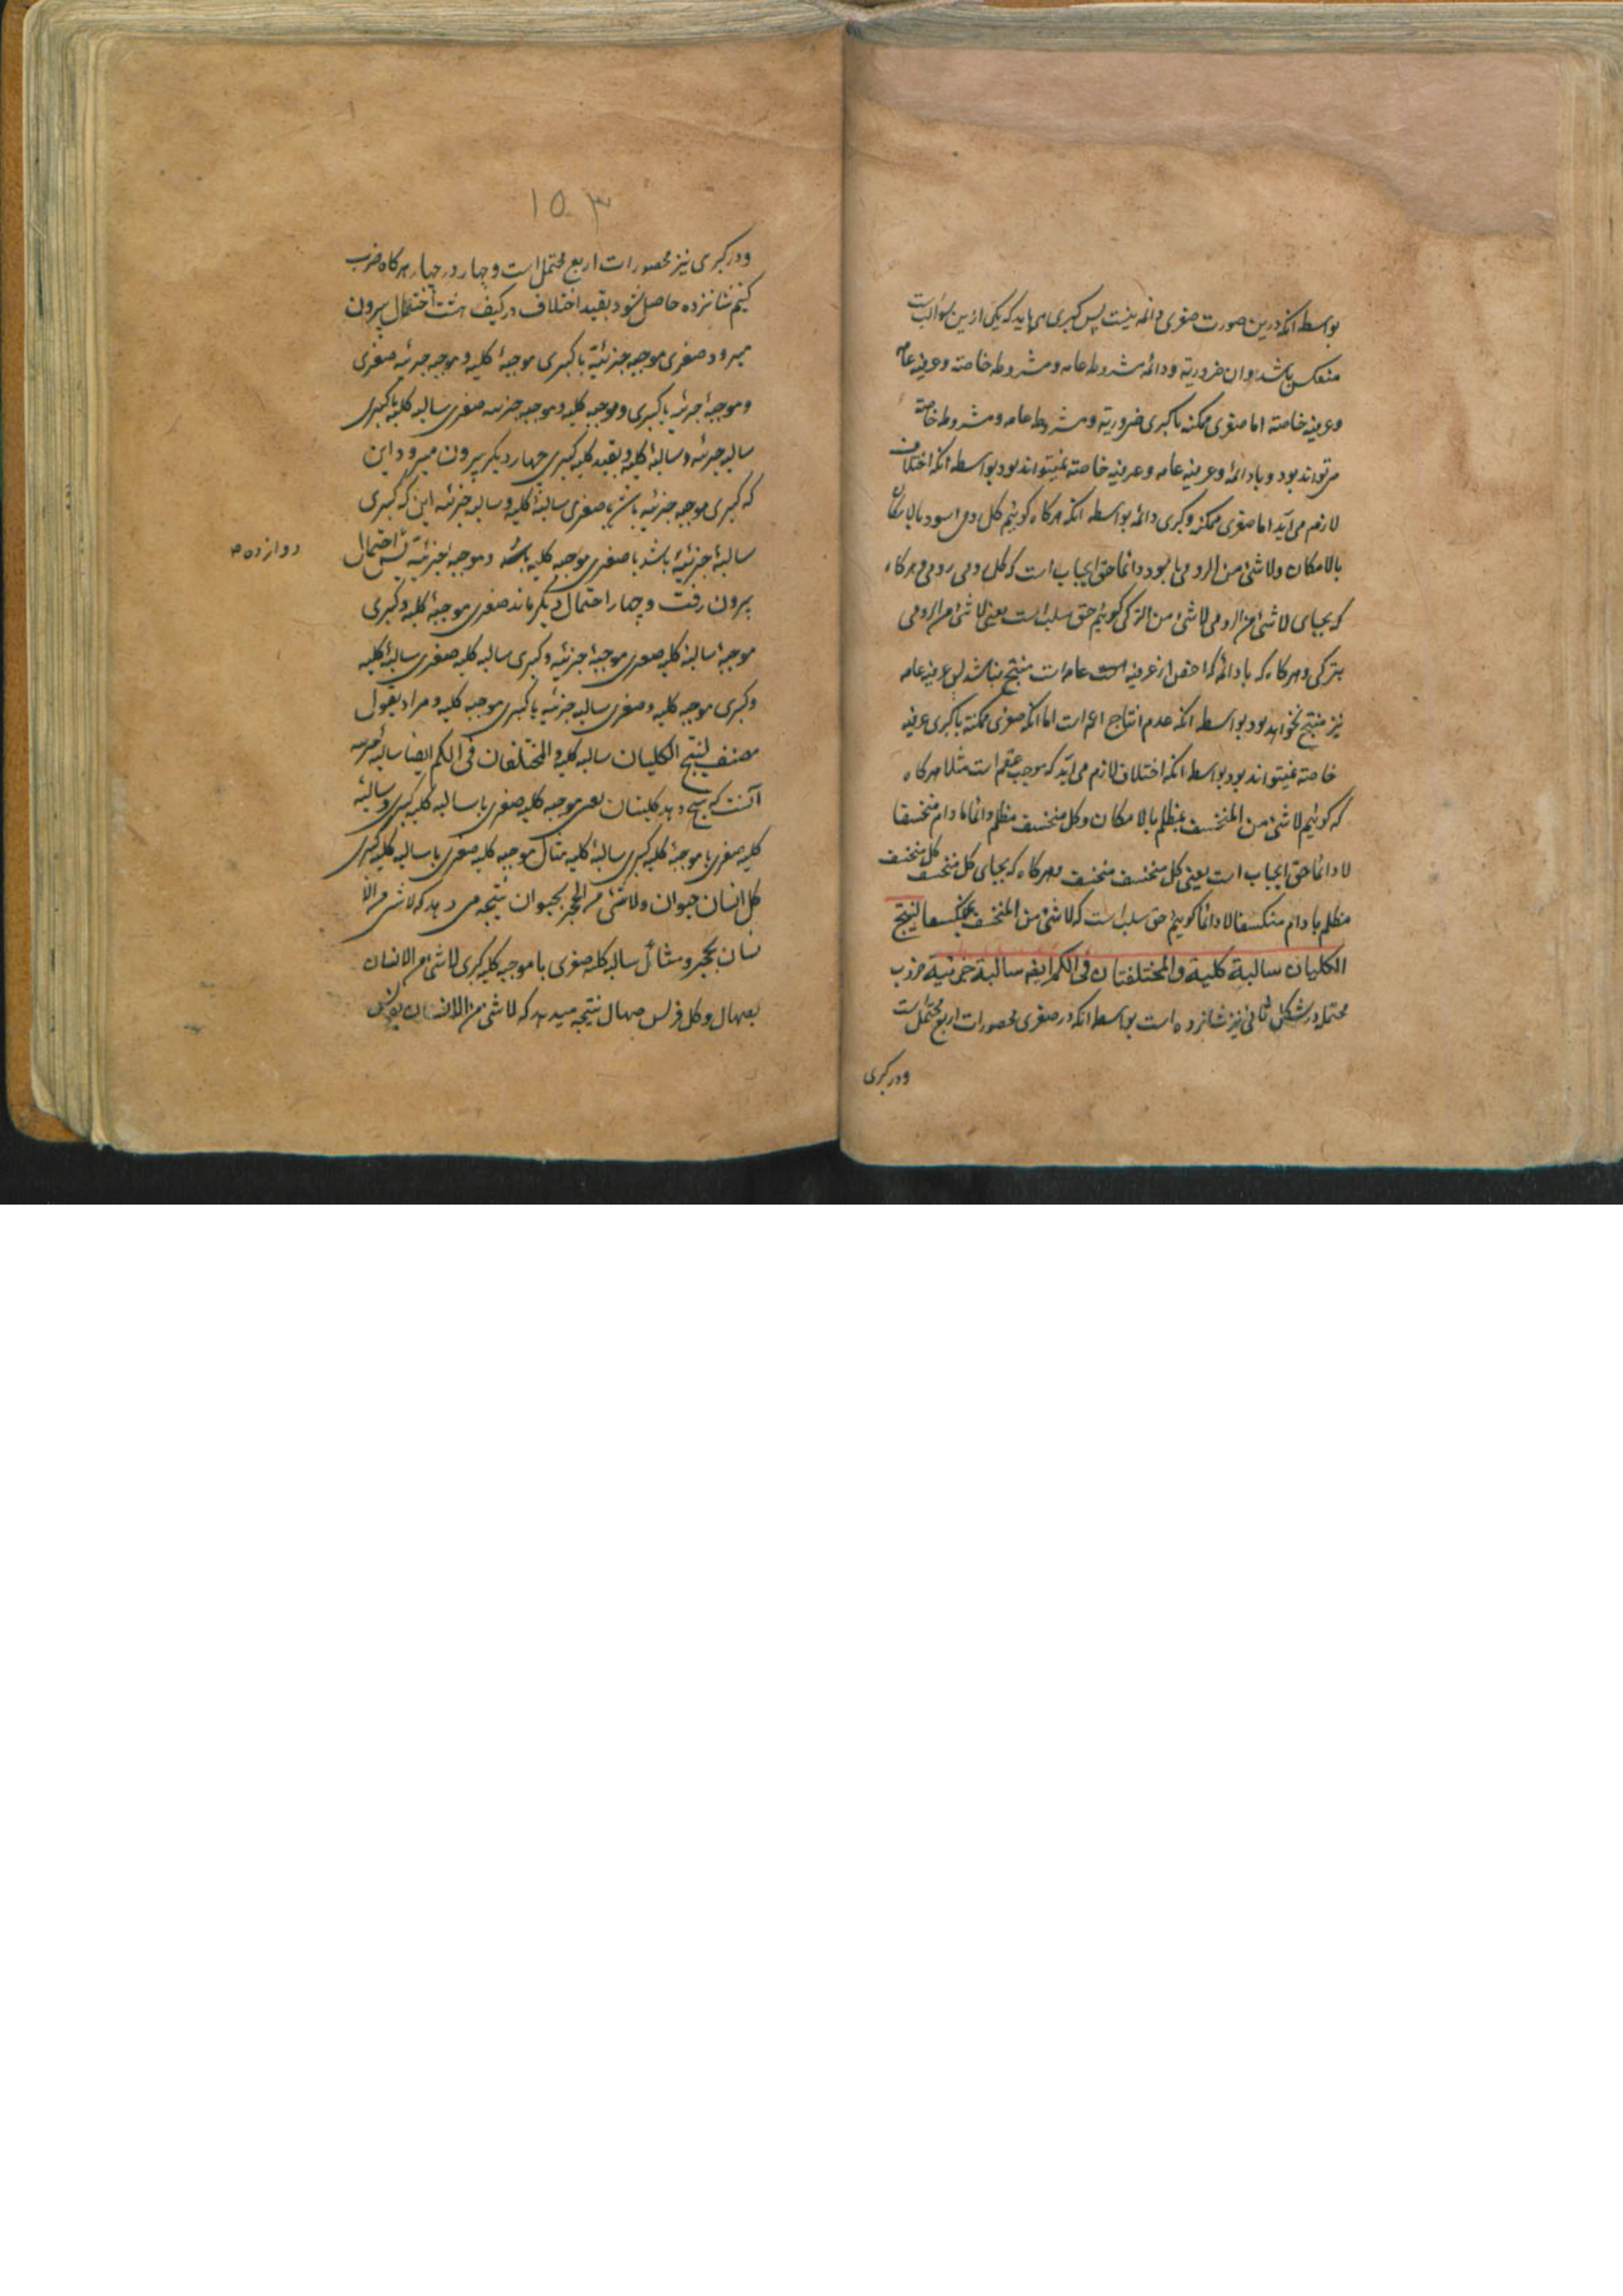 بواسطه انکه درین صورت صغری دائمه نیست پس کبری می باید که یکی ازین سوالب است
منعکس باشد و ان ضروریة و دائمه مشروطه عامه و مشروطه خاصه و عرفیه عامه
و عرفیه خاصة اما صغری ممکنه با کبری ضروریة و مشروطه عامه و مشروطه خاصة
می تواند بود و با دائمه و عرفیه عامه و عرفیه خاصة نمیتواند بود بواسطه انکه اختلاف
لازم می آید اما صغری ممکنه و کبری دائمه بواسطه انکه هرکاه کوئیم کل رومی اسود بالامکان
بالامکان ولا شئ من الرومی باسود دائما حق ایجاب است که کل رومی رومی و هرکاه
که بجای لا شئ من الرومی لا شئ من الترکی کوئیم حق سلب است یعنی لا شئ من الرومی
بترکی و هرکاه که با دائمه که اخص از عرفیه عامه است منتج نباشد پس عرفیه عامه
نیز منتج نخواهد بود بواسطه انکه عدم انتاج اعم است اما انکه صغری ممکنة با کبری عرفیه
خاصة نمیتواند بود بواسطه انکه اختلاف لازم می آید که موجب عقم است مثلا هرکاه
که کوئیم لا شئ من المنخسف بمظلم بالامکان و کل منخسف مظلم دائما مادام منخسفا
لا دائما حق ایجاب است یعنی کل منخسف منخسف و هرکاه که بجای کل منخسف کل منخسف
مظلم مادام منکسفا لا دائما کوییم حق سلب است که لا شئ من المنخسف بمنکسف لینتج
الکلیان سالبة کلیة والمختلفتان فی الکم ایضا سالبة جزئیة ضرب
محتمله در شکل ثانی نیز شانزده است بواسطه انکه در صغری محصورات اربع محتمل است
و در کبری
۱۵۳
و در کبری نیز محصورات اربع محتمل است و چهار در چهار هرکاه ضرب
کنیم شانزده حاصل شود بقید اختلاف در کیف هشت احتمال بیرون
میرود صغری موجبه جزئیة با کبری موجبهٔ کلیه و موجبه جزئیه صغری
و موجبهٔ جزئیه با کبری و موجبه کلیه و موجبه جزئیه صغری سالبه کلیه با کبری
سالبه جزئیه و سالبهٔ کلیه و بقید کلیه کبری چهار دیکر بیرون میرود این
که کبری موجبه جزئیه با صغری سالبهٔ کلیه و سالبه جزئیه این که کبری
سالبهٔ جزئیهٔ باشد با صغری موجبه کلیه و موجبهٔ جزئیة پس احتمال
دوازده
بیرون رفت و چهار احتمال دیکر ماند صغری موجبهٔ کلیه و کبری
موجبهٔ سالبهٔ کلیه صغری موجبهٔ جزئیه و کبری سالبه کلیه صغری سالبهٔ کلیه
و کبری موجبه کلیه و صغری سالبه جزئیه با کبری موجبه کلیه و مراد بقول
مصنف لینتج الکلیان سالبه کلیة والمختلفان فی الکم ایضا سالبه جزئیه
آنست که نتیجه دهد کلیتان یعنی موجبه کلیه صغری با سالبه کلیه کبری و سالبهٔ
کلیه صغری با موجبهٔ کلیه کبری سالبهٔ کلیه مثال موجبه کلیه صغری با سالبه کلیه کبری
کل انسان حیوان ولا شئ من الحجر بحیوان نتیجه می دهد که لا شئ من الا
نسان بحجر و مثال سالبه کلیه صغری با موجبه کلیه کبری لا شئ من الانسان
بصهال و کل فرس صهال نتیجه میدهد که لا شئ من الانسان بفرس